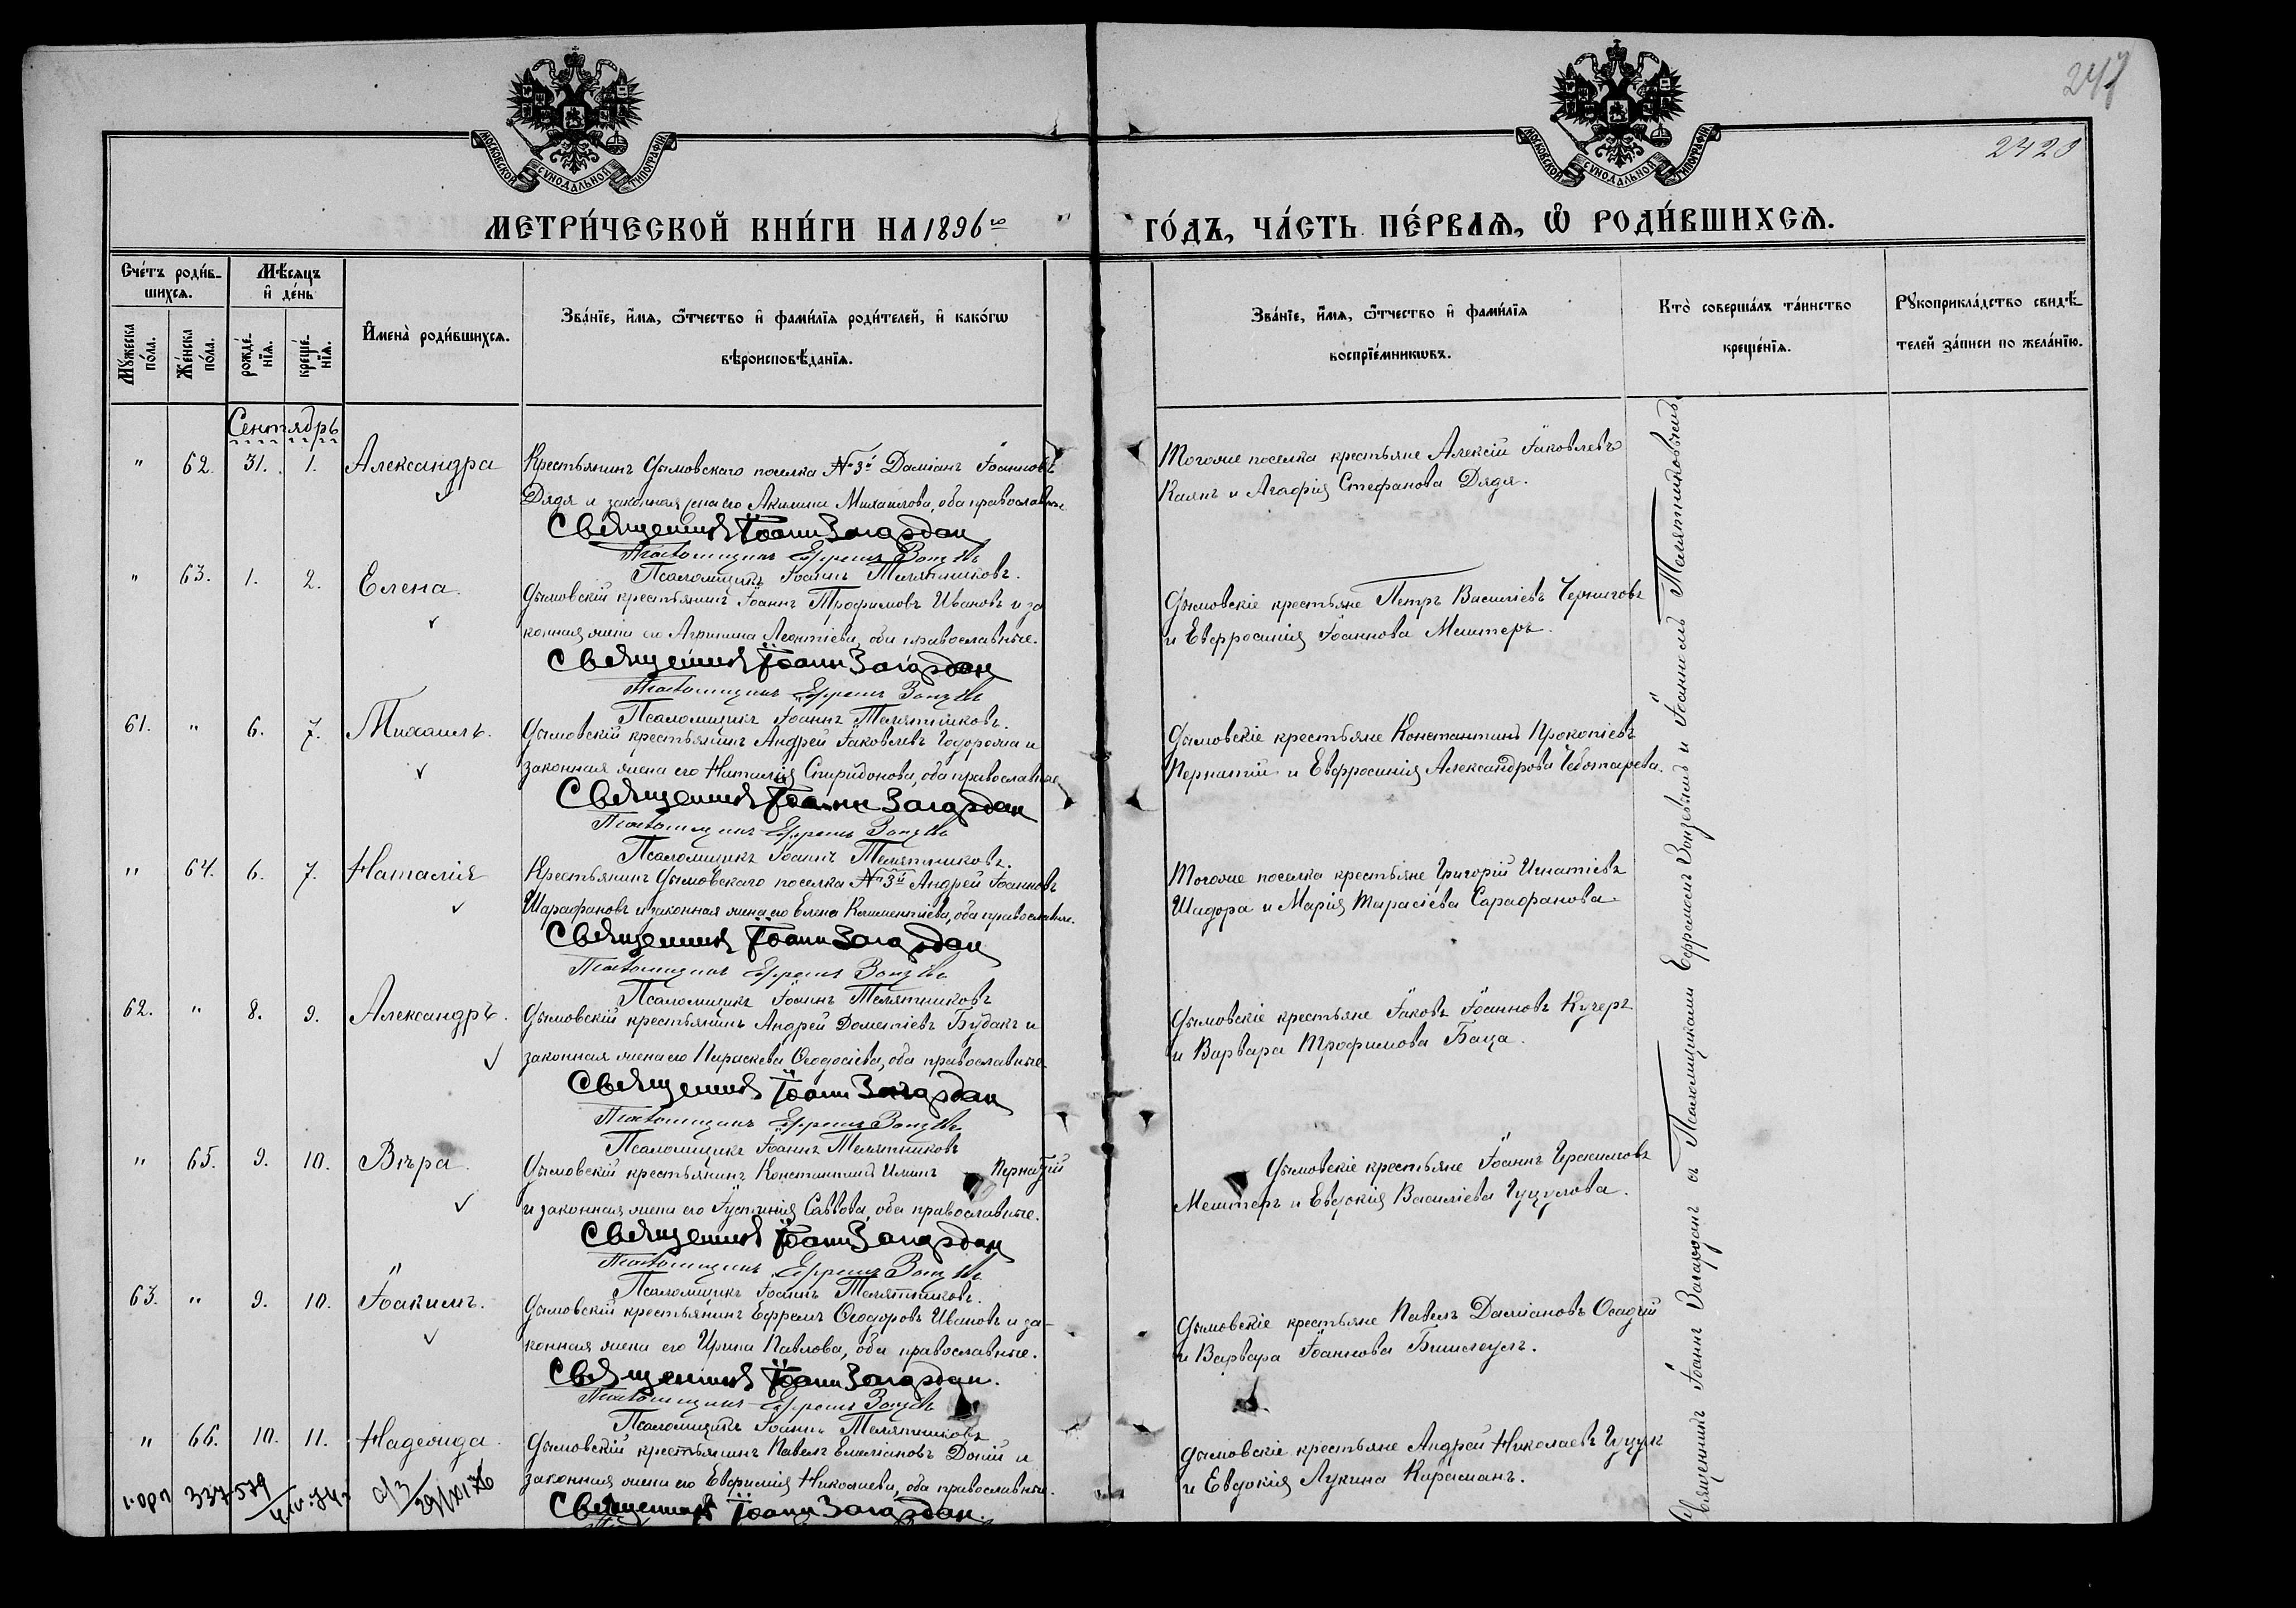 247
2420
МОСКОВСКОЙ СѴНОДАЛЬНОЙ ТИПОГРАФІИ
МОСКОВСКОЙ СѴНОДАЛЬНОЙ ТИПОГРАФІИ
МЕТРИ́ЧЕСКОЙ КНИ́ГИ НА 1896й ГО́ДЪ, ЧА́СТЬ ПЕ́РВАѦ, Ѽ РОДИ́ВШИХСѦ.
Сче́тъ роди́в-
шихсѧ.
Мѣ́сѧцъ
и҆ де́нь
Мꙋ́жеска по́ла.
Же́нска по́ла.
рожде́-нїѧ.
креще́-нїѧ.
И҆мена̀ роди́вшихсѧ.
Зва́нїе, и҆́мѧ, ѻ҆́тчество и҆ фами́лїѧ роди́телей, и҆ како́гѡ
вѣроисповѣ́данїѧ.
Зва́нїе, и҆́мѧ, ѻ҆́тчество и҆ фами́лїѧ
воспрїе́мникѡвъ.
Кто̀ соверша́лъ та́инство
креще́нїѧ.
Рꙋкоприкла́дство свидѣ́-
телей за́писи по жела́нїю.
Сентябрь
" 62. 31. 1. Александра Крестьянинъ Дымовскаго поселка №3й Даміанъ Іоанновъ
Дядя и законная жена его Акилина Михаилова, оба православные
Священникъ Іоаннъ Загародан
Псаломщикъ Ефремъ
Псаломщикъ Іоаннъ Телятниковъ.
Тогоже поселка крестьяне Алексій Іаковлевъ
Каянъ и Агафія Стефанова Дядя.
" 63. 1. 2. Елена. Дымовскій крестьянинъ Іоаннъ Трофимовъ Ивановъ и за
конная жена его Агрипина Леонтіева, оба православные.
Священникъ Іоаннъ Загародан
Псаломщикъ Ефремъ
Псаломщикъ Іоаннъ Телятниковъ.
Дымовскіе крестьяне Петръ Василіевъ Черниговъ
и Евфросинія Іоаннова Мештеръ.
61. " 6. 7. Михаилъ. Дымовскій крестьянинъ Андрей Іаковлевъ Годорожа и
законная жена его Наталія Спиридонова, оба православные
Священникъ Іоаннъ Загародан
Псаломщикъ Ефремъ
Псаломщикъ Іоаннъ Телятниковъ.
Дымовскіе крестьяне Константинъ Прокопіевъ
Пернатій и Евфросинія Александрова Чеботарева.
" 64. 6. 7. Наталія Крестьянинъ Дымовскаго поселка №3й Андрей Іоанновъ
Шарафановъ и законная жена его Елена Климентіева, оба православные.
Священникъ Іоаннъ Загародан
Псаломщикъ Ефремъ
Псаломщикъ Іоаннъ Телятниковъ
Тогоже поселка крестьяне Григорій Игнатіевъ
Шадора и Марія Тарасіева Сарафанова.
62. " 8. 9. Александръ. Дымовскій крестьянинъ Андрей Дометіевъ Будакъ и
законная жена его Параскева Ѳеодосіева, оба православные.
Священникъ Іоаннъ Загародан
Псаломщикъ Ефремъ
Псаломщикъ Іоаннъ Телятниковъ
Дымовскіе крестьяне Іаковъ Іоанновъ Кучеръ
и Варвара Трофимова Баца.
" 65. 9. 10. Вѣра. Дымовскій крестьянинъ Константинъ Илиинъ Пернатій
и законная жена его Іустинія Саввова, оба православные.
Священникъ Іоаннъ Загародан
Псаломщикъ Ефремъ
Псаломщикъ Іоаннъ Телятниковъ.
Дымовскіе крестьяне Іоаннъ Иракимовъ
Мештеръ и Евдокія Василіева Гуцулова.
63. " 9. 10. Іоакимъ. Дымовскій крестьянинъ Ефремъ Ѳеодоровъ Ивановъ и за-
конная жена его Ирина Павлова, оба православные.
Священникъ Іоаннъ Загародан.
Псаломщикъ Ефремъ
Псаломщикъ Іоаннъ Телятниковъ
Дымовскіе крестьяне Павелъ Даміановъ Осадчій
и Варвара Іоаннова Бишлеулъ.
" 66. 10. 11. Надежда. Дымовскій крестьянинъ Павелъ Емеліановъ Доній и
законная жена его Евфимія Николаева, оба православные.
Священникъ Іоаннъ Загародан.
Дымовскіе крестьяне Андрей Николаевъ Гуцулъ
и Евдокія Лукина Караманъ.
337579
а/з 29/XI 76
Священникъ Іоаннъ Загародан съ Псаломщиками Ефремомъ и Іоанномъ Телятниковымъ